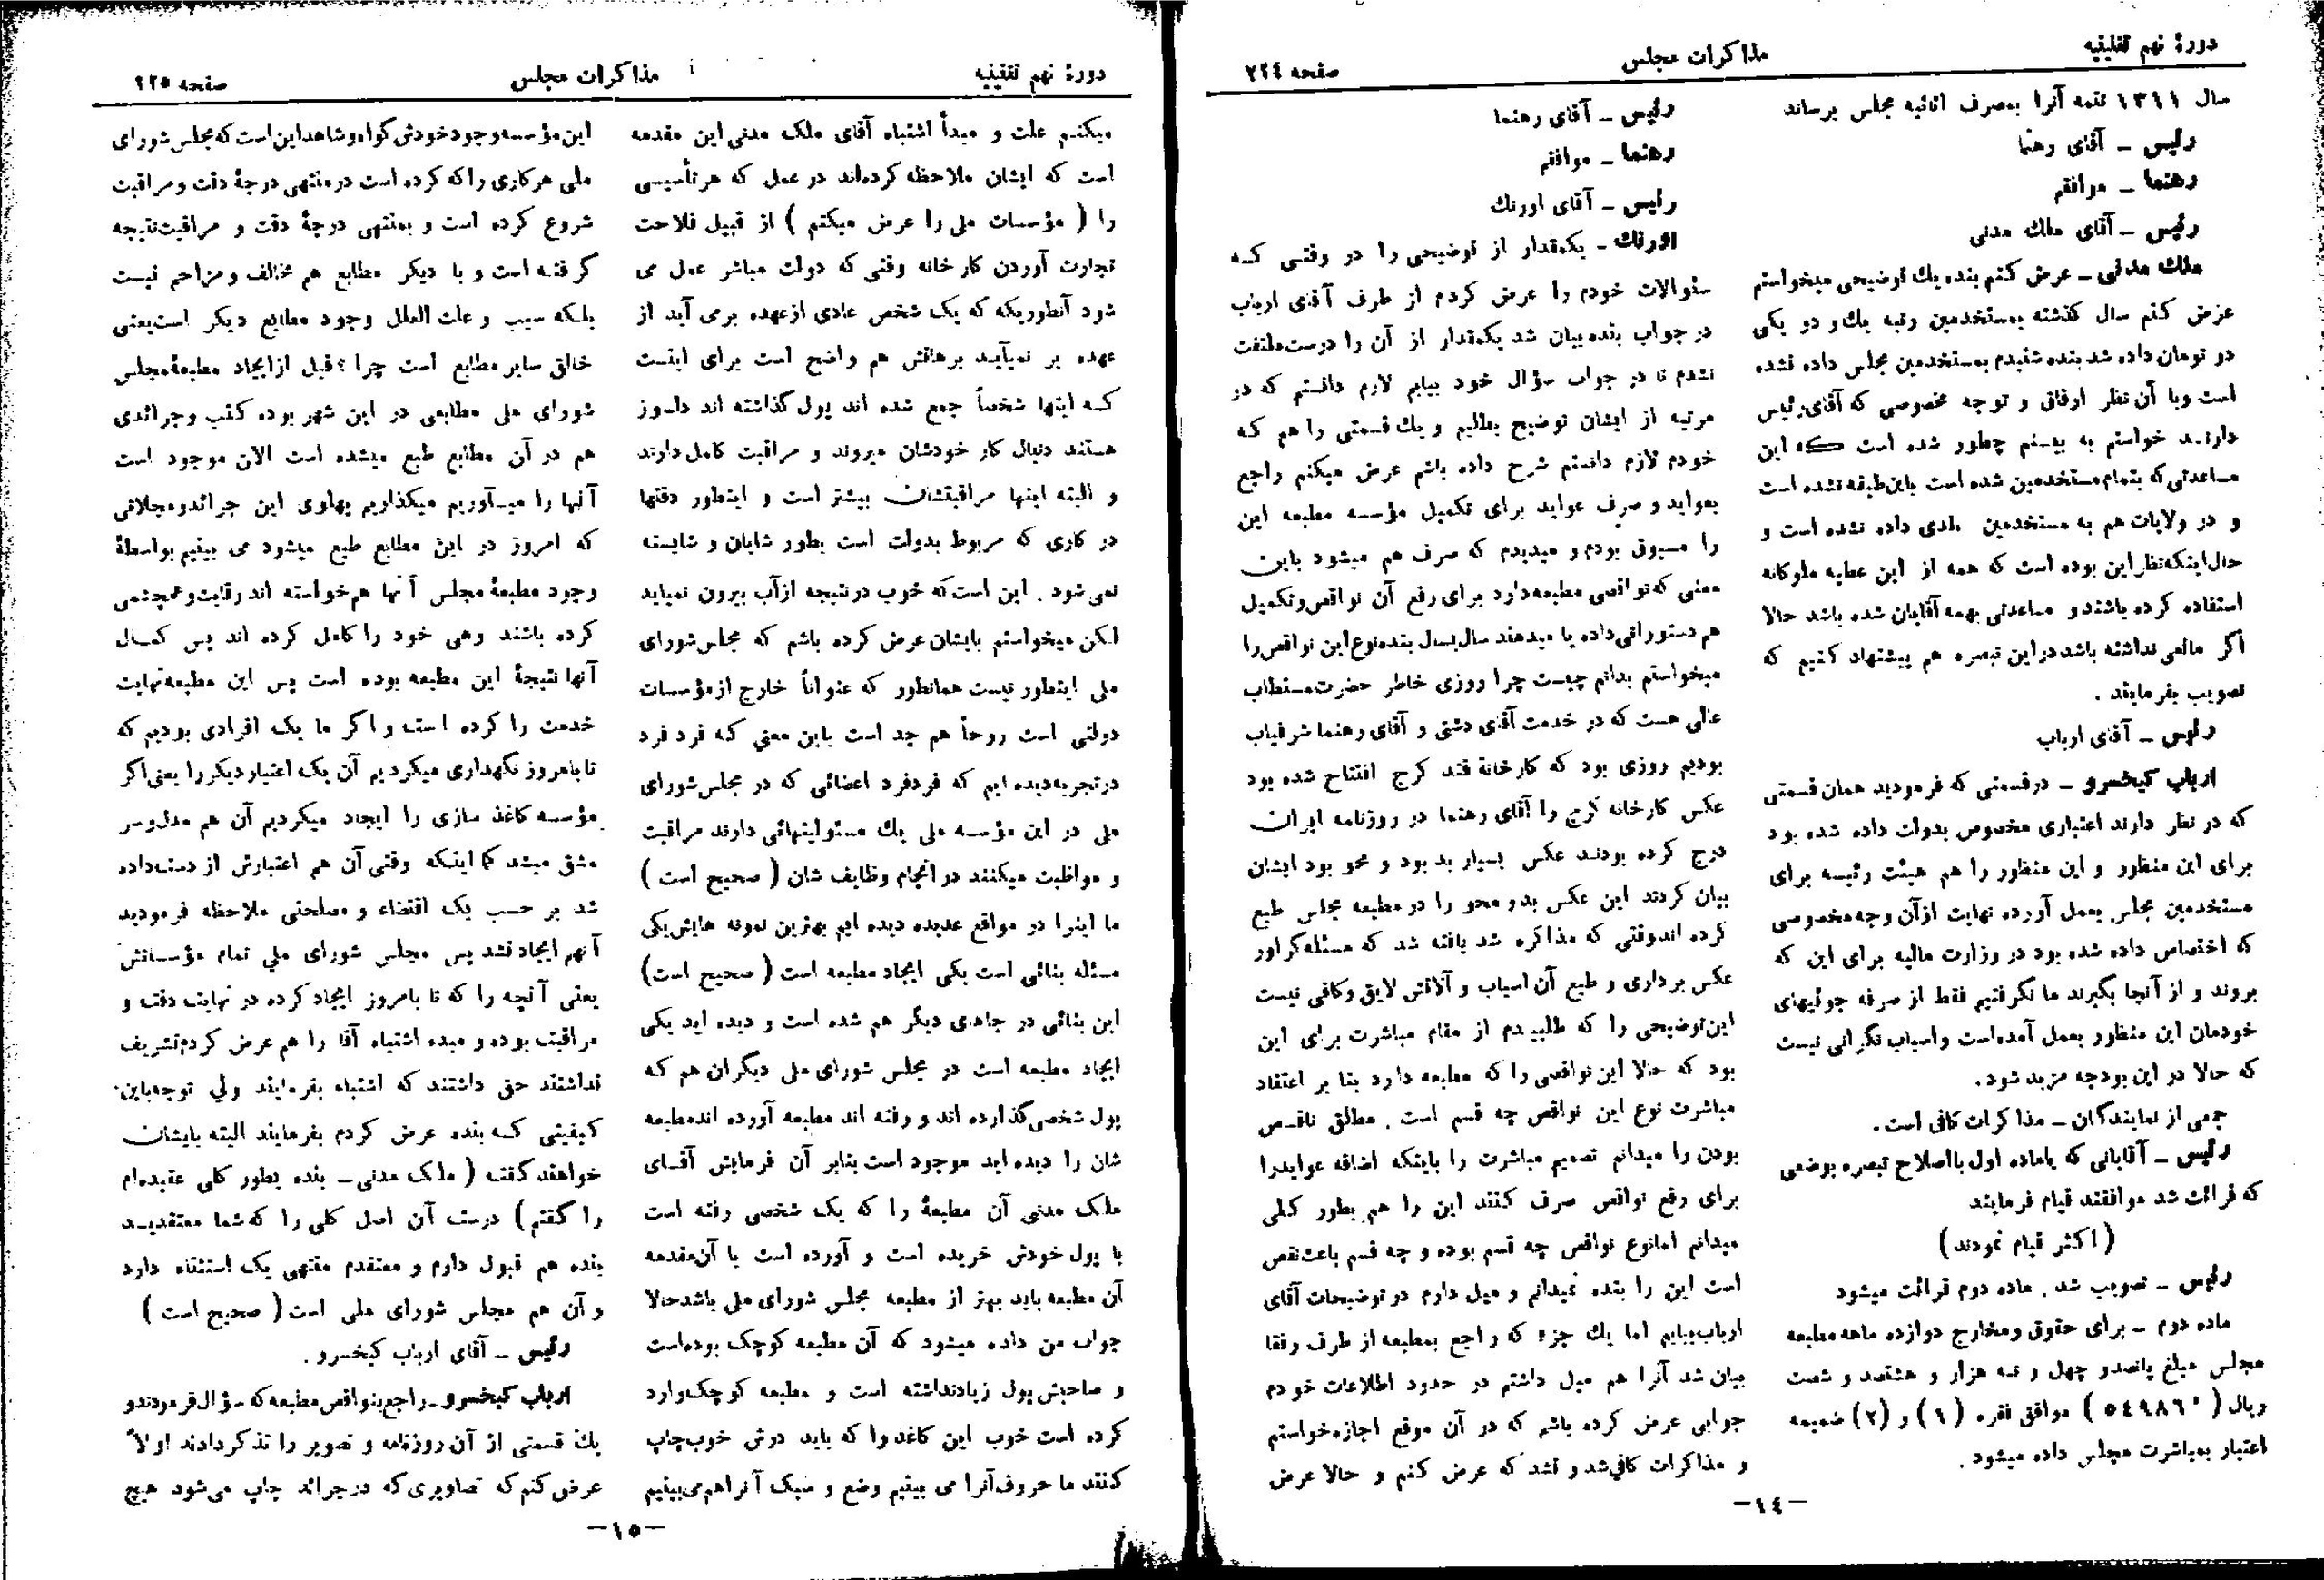 دورهٔ نهم تقنینیه
مذاکرات مجلس
صفحه ۷۲٤
سال ۱۳۱۱ تتمه آنرا بمصرف اثاثیه مجلس برساند
رئیس ــ آقای رهنما
رهنما ــ موافقم
رئیس ــ آقای ملك مدنی
ملك مدنی ــ عرض کنم بنده یك توضیحی میخواستم
عرض کنم سال گذشته بمستخدمین رتبه یك و دو یکی
دو تومان داده شد بنده شنیدم بمستخدمین مجلس داده نشده
است وبا آن نظر ارفاقی و توجه مخصوصی که آقای رئیس
دارند خواستم به بینم چطور شده است که این
مساعدتی که بتمام مستخدمین شده است باین طبقه نشده است
و در ولایات هم به مستخدمین بلدی داده نشده است و
حال اینکه نظر این بوده است که همه از این عطیه ملوکانه
استفاده کرده باشند و مساعدتی بهمه آقایان شده باشد حالا
اگر مانعی نداشته باشد در این تبصره هم پیشنهاد کنیم که
تصویب بفرمایند .
رئیس ــ آقای ارباب
ارباب کیخسرو ــ در قسمتی که فرمودید همان قسمتی
که در نظر دارند اعتباری مخصوص بدولت داده شده بود
برای این منظور و این منظور را هم هیئت رئیسه برای
مستخدمین مجلس بعمل آورده نهایت از آن وجه مخصوصی
که اختصاص داده شده بود در وزارت مالیه برای این که
بروند و از آنجا بگیرند ما نگرفتیم فقط از صرفه جوئیهای
خودمان این منظور بعمل آمده است و اسباب نگرانی نیست
که حالا در این بودجه مزید شود.
جمعی از نمایندگان ــ مذاکرات کافی است .
رئیس ــ آقایانی که باماده اول با اصلاح تبصره بوضعی
که قرائت شد موافقند قیام فرمایند
( اکثر قیام نمودند )
رئیس ــ تصویب شد . ماده دوم قرائت میشود
ماده دوم ــ برای حقوق و مخارج دوازده ماهه مطبعه
مجلس مبلغ پانصد و چهل و نه هزار و هشتصد و شصت
ریال ( ٥٤۹۸٦۰ ) موافق فقره (۱) و (۲) ضمیمه
اعتبار بمباشرت مجلس داده میشود .
رئیس ــ آقای رهنما
رهنما ــ موافقم
رئیس ــ آقای اورنك
اورنك ــ یکمقدار از توضیحی را در وقتی که
سئوالات خودم را عرض کردم از طرف آقای ارباب
در جواب بنده بیان شد یکمقدار از آن را درست ملتفت
نشدم تا در جواب سؤال خود بیابم لازم دانستم که دو
مرتبه از ایشان توضیح بطلبم و یك قسمتی را هم که
خودم لازم دانستم شرح داده باشم عرض میکنم راجع
بعواید و صرف عواید برای تکمیل مؤسسه مطبعه این
را مسبوق بودم و میدیدم که صرف هم میشود باین
معنی که نواقصی مطبعه دارد برای رفع آن نواقص و تکمیل
هم دستوراتی داده یا میدهند سال بسال بنده نوع این نواقص را
میخواستم بدانم چیست چرا روزی خاطر حضرت مستطاب
عالی هست که در خدمت آقای دشتی و آقای رهنما شرفیاب
بودیم روزی بود که کارخانهٔ قند کرج افتتاح شده بود
عکس کارخانه کرج را آقای رهنما در روزنامه ایران
درج کرده بودند عکس بسیار بد بود و محو بود ایشان
بیان کردند این عکس بد و محو را در مطبعه مجلس طبع
کرده اند وقتی که مذاکره شد یافته شد که مسئله گراور
عکس برداری و طبع آن اسباب و آلاتش لایق و کافی نیست
این توضیحی را که طلبیدم از مقام مباشرت برای این
بود که حالا این نواقصی را که مطبعه دارد بنا بر اعتقاد
مباشرت نوع این نواقص چه قسم است . مطلق ناقص
بودن را میدانم تصمیم مباشرت را باینکه اضافه عواید را
برای رفع نواقص صرف کنند این را هم بطور کلی
میدانم امانوع نواقص چه قسم بوده و چه قسم باعث نقص
است این را بنده نمیدانم و میل دارم در توضیحات آقای
ارباب بیابم اما یك جزء که راجع بمطبعه از طرف رفقا
بیان شد آنرا هم میل داشتم در حدود اطلاعات خودم
جوابی عرض کرده باشم که در آن موقع اجازه خواستم
و مذاکرات کافی شد و نشد که عرض کنم و حالا عرض
ــ۱٤ــ
دورهٔ نهم تقنینیه
مذاکرات مجلس
صفحه ۹۲٥
میکنم علت و مبدأ اشتباه آقای ملك مدنی این مقدمه
است که ایشان ملاحظه کرده‌اند در عمل که هر تأسیسی
را ( مؤسسات ملی را عرض میکنم ) از قبیل فلاحت
تجارت آوردن کارخانه وقتی که دولت مباشر عمل می
شود آنطوریکه که یک شخص عادی از عهده برمی آید از
عهده بر نمیآید برهانش هم واضح است برای اینست
که اینها شخصاً جمع شده اند پول گذاشته اند دلسوز
هستند دنبال کار خودشان میروند و مراقبت کامل دارند
و البته اینها مراقبتشان بیشتر است و اینطور دقتها
در کاری که مربوط بدولت است بطور شایان و شایسته
نمی شود . این است که خوب در نتیجه از آب بیرون نمیاید
لکن میخواستم بایشان عرض کرده باشم که مجلس شورای
ملی اینطور نیست همانطور که عنواناً خارج از مؤسسات
دولتی است روحاً هم جد است باین معنی که فرد فرد
در تجربه دیده ایم که فرد فرد اعضائی که در مجلس شورای
ملی در این مؤسسه ملی یك مسئولیتهائی دارند مراقبت
و مواظبت میکنند در انجام وظایف شان ( صحیح است )
ما اینرا در مواقع عدیده دیده ایم بهترین نمونه هایش یکی
مسئله بنائی است یکی ایجاد مطبعه است ( صحیح است)
این بنائی در جاهای دیگر هم شده است و دیده اید یکی
ایجاد مطبعه است در مجلس شورای ملی دیگران هم که
پول شخصی گذارده اند و رفته اند مطبعه آورده اند مطبعه
شان را دیده اید موجود است بنابر آن فرمایش آقای
ملک مدنی آن مطبعهٔ را که یک شخصی رفته است
با پول خودش خریده است و آورده است با آن مقدمه
آن مطبعه باید بهتر از مطبعه مجلس شورای ملی باشد حالا
جواب من داده میشود که آن مطبعه کوچک بوده است
و صاحبش پول زیاد نداشته است و مطبعه کوچک وارد
کرده است خوب این کاغذ را که باید درش خوب چاپ
کنند ما حروف آنرا می بینیم وضع و سبک آنرا هم می بینیم
این مؤسسه وجود خودش گواه و شاهد این است که مجلس شورای
ملی هر کاری را که کرده است در منتهی درجهٔ دقت و مراقبت
شروع کرده است و بمنتهی درجهٔ دقت و مراقبت نتیجه
گرفته است و با دیگر مطابع هم مخالف و مزاحم نیست
بلکه سبب و علت العلل وجود مطابع دیگر است یعنی
خالق سایر مطابع است چرا ؟ قبل از ایجاد مطبعهٔ مجلس
شورای ملی مطابعی در این شهر بوده کتب و جرائدی
هم در آن مطابع طبع میشده است الان موجود است
آنها را میآوریم میگذاریم پهلوی این جرائد و مجلاتی
که امروز در این مطابع طبع میشود می بینیم بواسطهٔ
وجود مطبعهٔ مجلس آنها هم خواسته اند رقابت و همچشمی
کرده باشند وهی خود را کامل کرده اند پس کمال
آنها نتیجهٔ این مطبعه بوده است پس این مطبعه نهایت
خدمت را کرده است و اگر ما یک افرادی بودیم که
تا بامروز نگهداری میکردیم آن یک اعتبار دیگر را یعنی اگر
مؤسسه کاغذ سازی را ایجاد میکردیم آن هم مدل و سر
مشق میشد کما اینکه وقتی آن هم اعتبارش از دست داده
شد بر حسب یک اقتضاء و مصلحتی ملاحظه فرمودید
آنهم ایجاد نشد پس مجلس شورای ملی تمام مؤسساتش
یعنی آنچه را که تا بامروز ایجاد کرده در نهایت دقت و
مراقبت بوده و مبدء اشتباه آقا را هم عرض کردم تشریف
نداشتند حق داشتند که اشتباه بفرمایند ولی توجه باین
کیفیتی که بنده عرض کردم بفرمایند البته بایشان
خواهند گفت ( ملک مدنی ــ بنده بطور کلی عقیده‌ام
را گفتم ) درست آن اصل کلی را که شما معتقدید
بنده هم قبول دارم و معتقدم منتهی یک استثناء دارد
و آن هم مجلس شورای ملی است ( صحیح است )
رئیس ــ آقای ارباب کیخسرو .
ارباب کیخسرو ــ راجع بنواقص مطبعه که سؤال فرمودند و
یك قسمتی از آن روزنامه و تصویر را تذکر دادند اولاً
عرض کنم که تصاویری که در جرائد چاپ می شود هیچ
ــ۱٥ــ